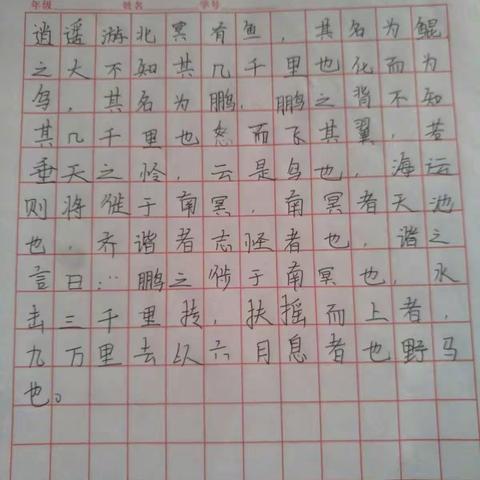 年级 姓名 学号
逍遥游北冥有鱼，其名为鲲
之大不知其几千里也化而为
鸟，其名为鹏，鹏之背不知
其几千里也怒而飞其翼，若
垂天之怜，云是鸟也，海运
则将徙于南冥，南冥者天池
也，齐谐者志怪者也，谐之
言曰：“鹏之徙于南冥也，水
击三千里抟，扶摇而上者，
九万里去以六月息者也野马
也。